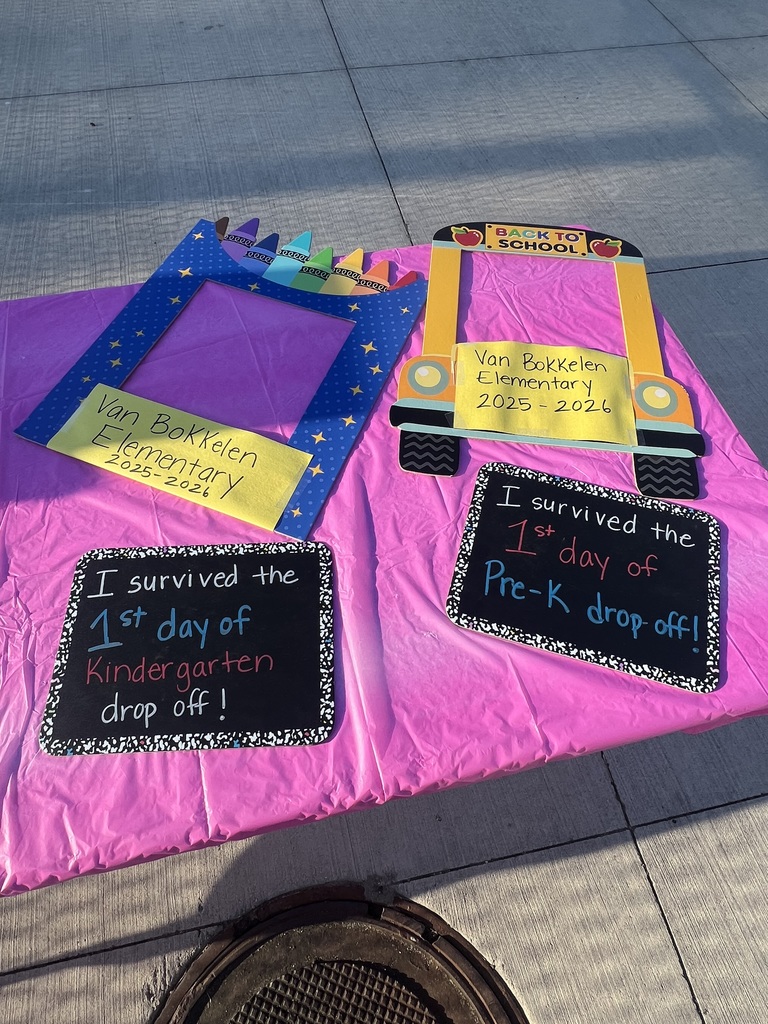 BACK TO
SCHOOL
Van Bokkelen
Elementary
2025-2026
Van Bokkelen
Elementary
2025-2026
I survived the
1st day of
Kindergarten
drop off!
I survived the
1st day of
Pre-K drop off!